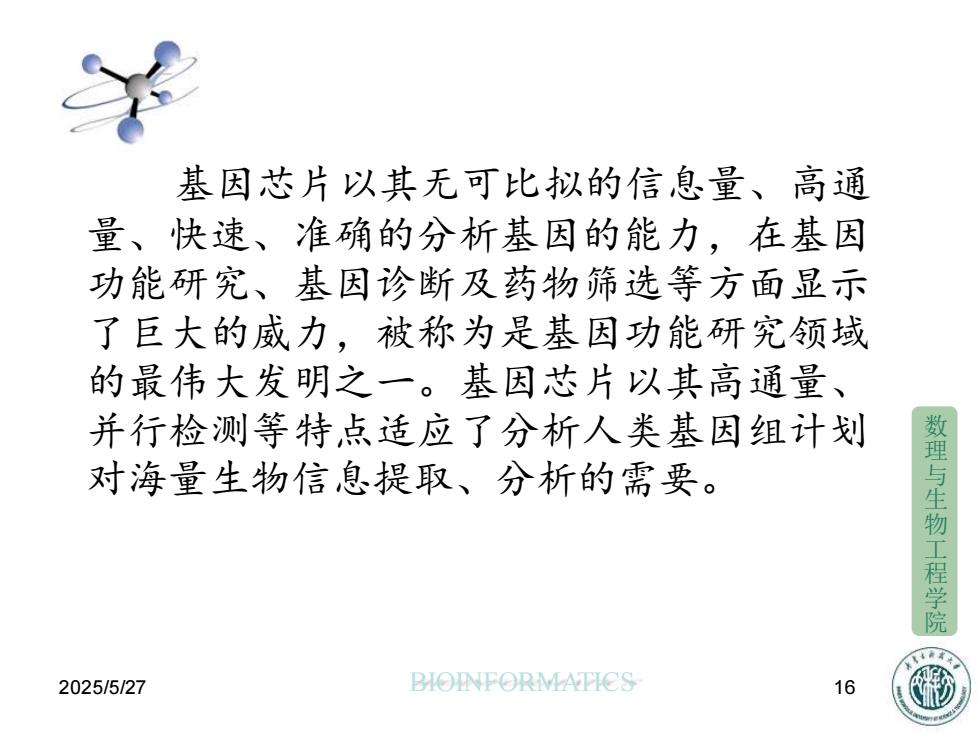 基因芯片以其无可比拟的信息量、高通
量、快速、准确的分析基因的能力，在基因
功能研究、基因诊断及药物筛选等方面显示
了巨大的威力，被称为是基因功能研究领域
的最伟大发明之一。基因芯片以其高通量、
并行检测等特点适应了分析人类基因组计划
对海量生物信息提取、分析的需要。
数理与生物工程学院
2025/5/27
BIOINFORMATICS
16